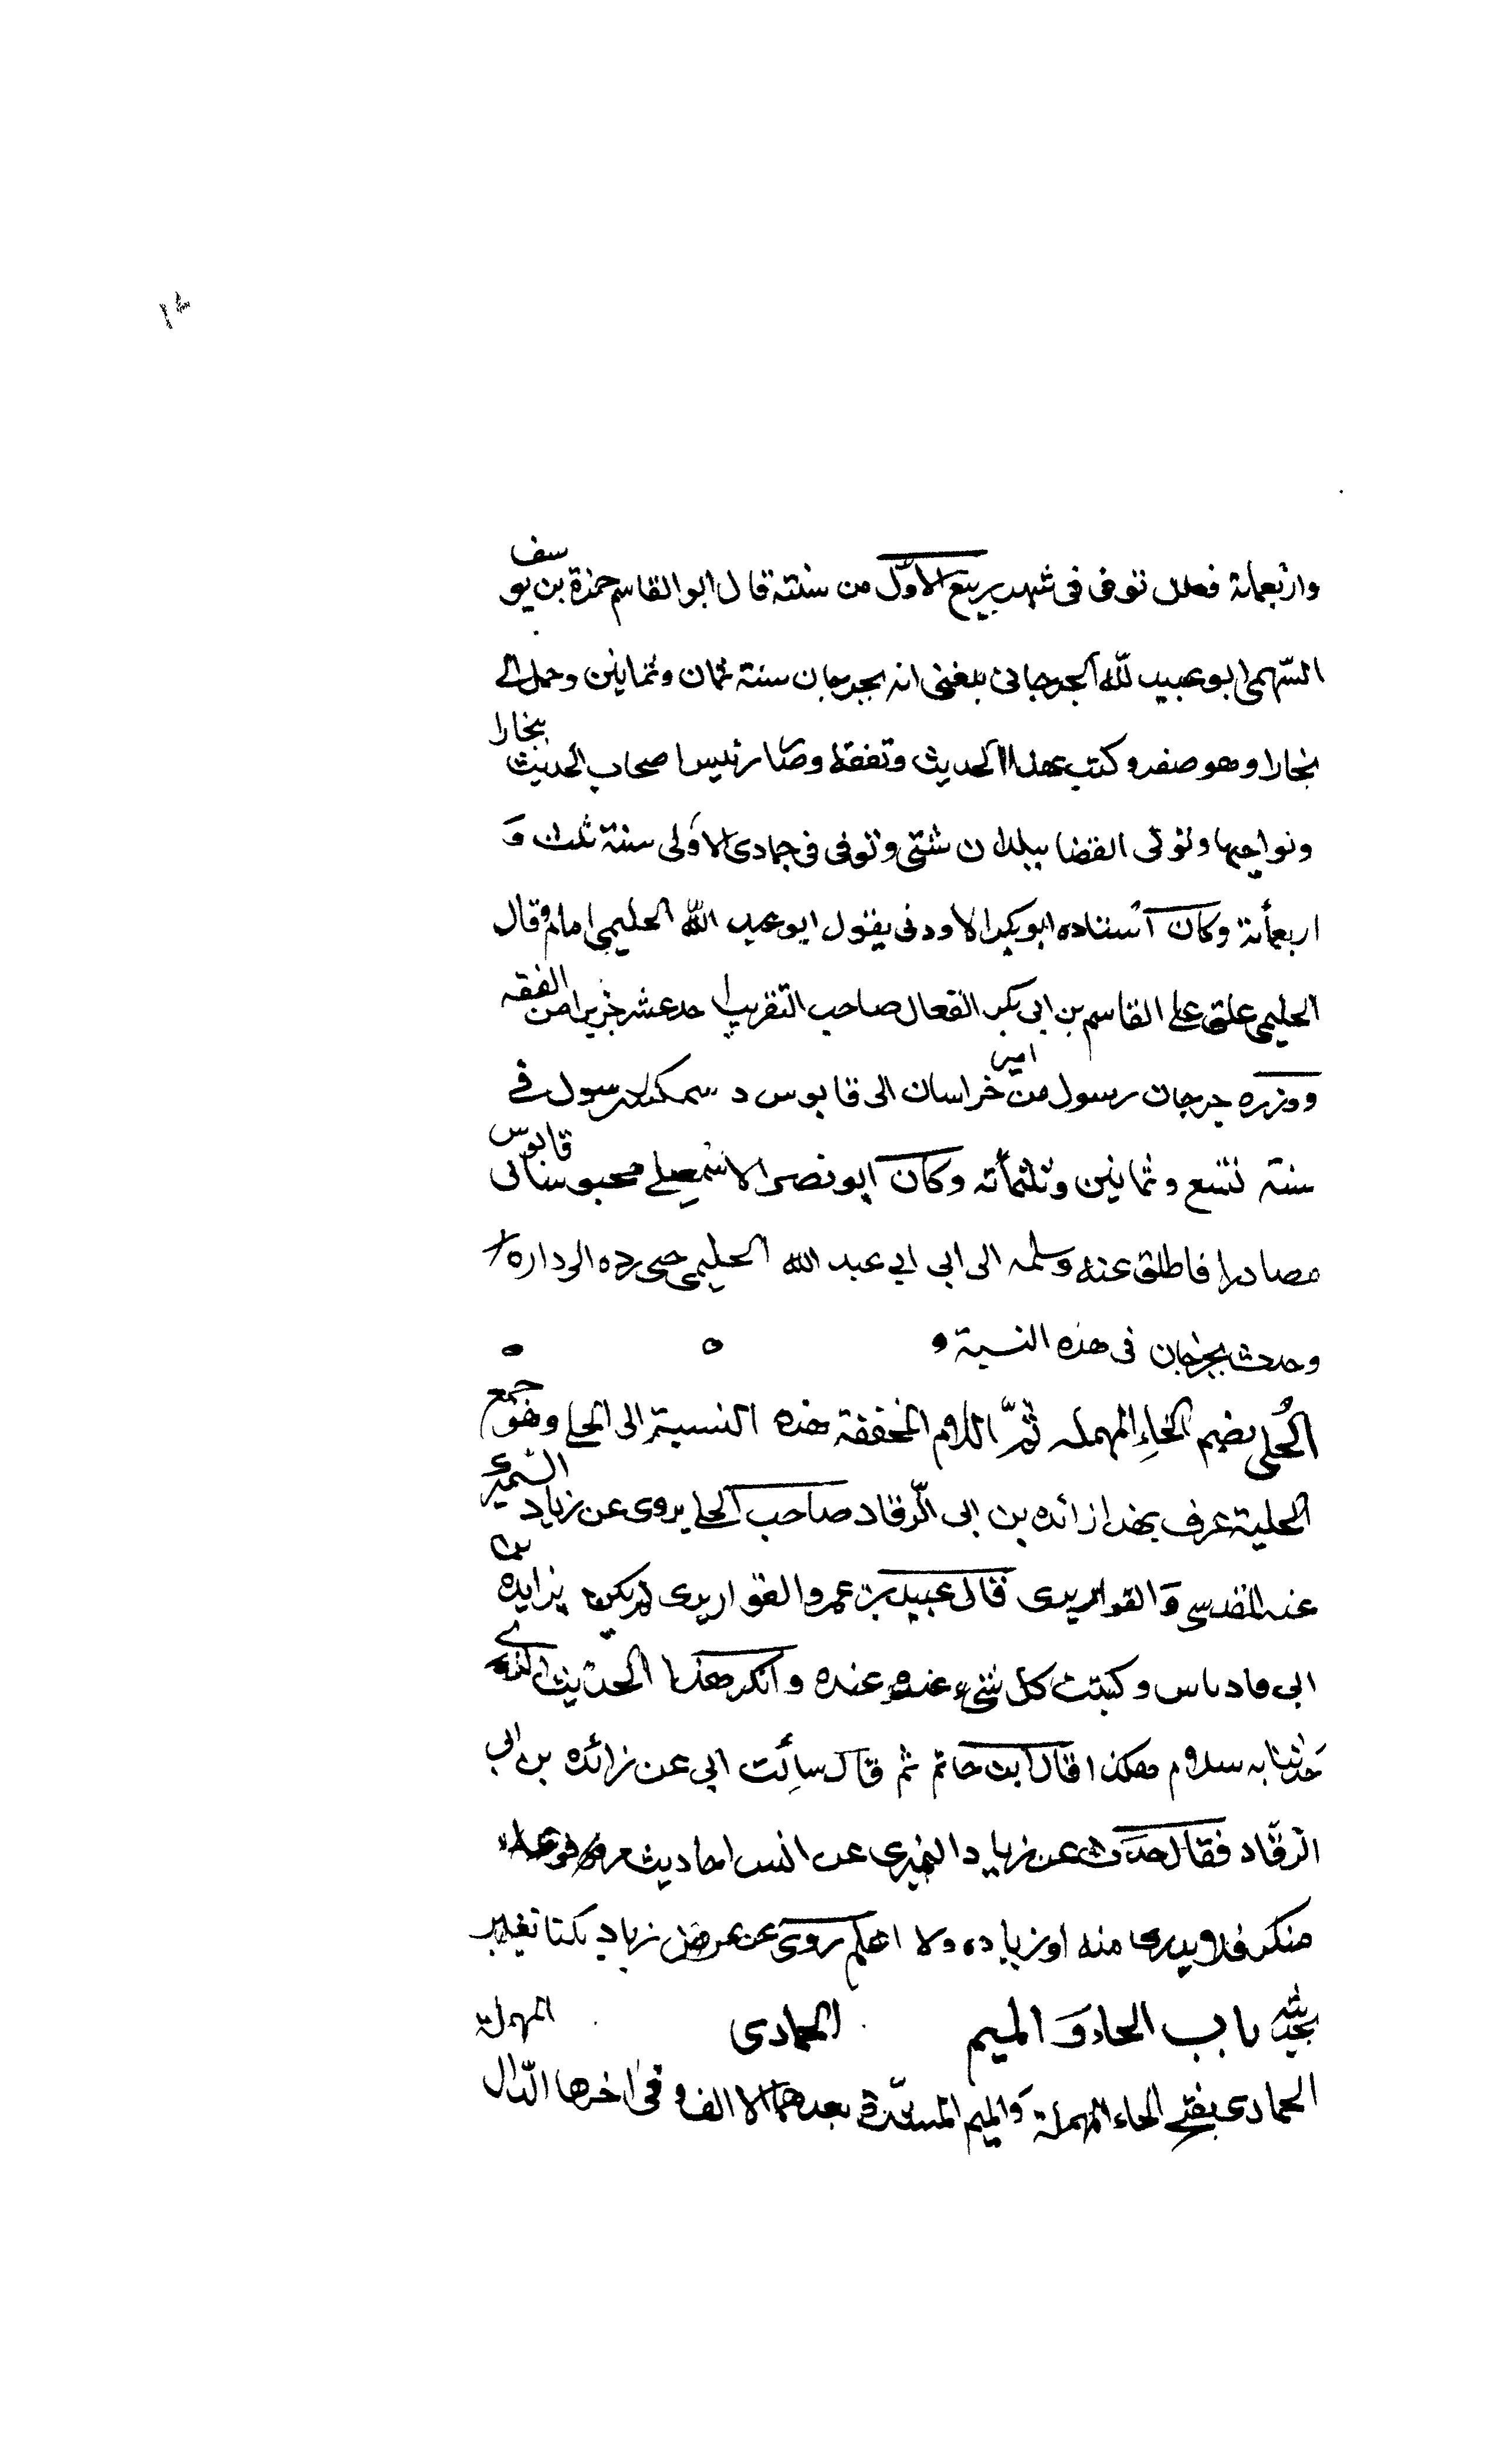 واربعمائة فعلل توفى فى شهر ربيع الاوّل من سنته قال ابوالقاسم حمزة بن يوسف
السّهمى ابو عبيد لله الجرجانى بلغنى انه بجرجان سنة ثمان وثمانين وحمل الى
بخارا وهو صغير وكتب بهذا الحديث وتفقه وصار رئيس اصحاب الحديث ببخارا
ونواحيها وتولى القضا ببلدان شتى وتوفى فى جمادى الاولى سنة ثلث و
اربعمأئة وكان استاده ابو بكر الاودنى يقول ابو عبد الله الحليمى امام وقال
الحليمى علق على القاسم بن ابى بكر القفال صاحب التقريب احد عشر جزيرا من الفقه
وورده جرجان رسول من امير خراسان الى قابوس د سمكلار سول فى
سنة تسع وثمانين وثلثمأته وكان ابو نصر الاسمعيلى محبوسا فى قابوس
مصادرا فاطلق عنه وسلمه الى ابى ابي عبد الله الحليمى حتى رده الى داره
وحدث بجرجان فى هذه النسبة و
الحُلى بضم الحاءِ المهمله ثمّ اللام المخففة هذه النسبة الى الحلى وهو جمع
الحلية عرف بهذا زائده بن ابى الرّقاد صاحب الحلى يروى عن زياد النميرى
عنه المقدسى وَالقواريرى قال عبيد بن عمر والقواريرى لم يكن بزايده بن
ابى وكتبت كل شىء عنده وانكر هذا الحديث الذے
حَدثنا به سلام هكذا قال ابن حاتم ثم قال سائت ابى عن زائده بن ابى
الرقّاد فقال حدّث عن زياد النميرى عن انس احاديث مرفوعة
منكر فلا يدرى منه او زياده ولا اعلم روى عن غير زياد
باب الحاء وَ الميم الحمادى المهملة
الحمادى بفتح الحاء المهملة وَالميم المشدّدة بعدهما الالف و فى اخرها الدّال